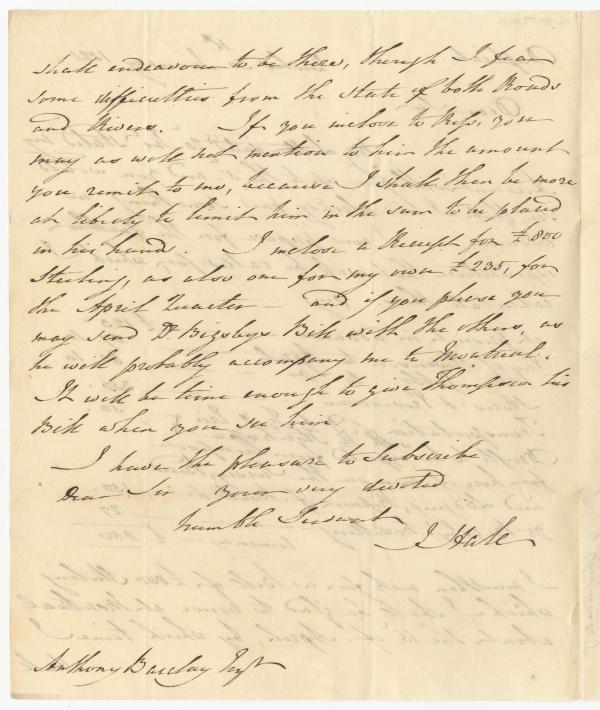 shall endeavour to be there, though I fear
some difficulties from the state of both Roads
and Rivers. If you inclose to Ross, you
may as well not mention to him the amount
you remit to me, because I shall then be more
at liberty to limit him in the sum to be placed
in his hand. I inclose a Receipt for £850
Sterling, as also one for my own £235, for
the April Quarter — and if you please you
may send Dr. Bigsbys Bill with the others, as
he will probably accompany me to Montreal.
It will be time enough to give Thompson his
Bill when you see him
I have the pleasure to Subscribe
Dear Sir your very devoted
humble Servant
J Hale
Anthony Barclay Esqr